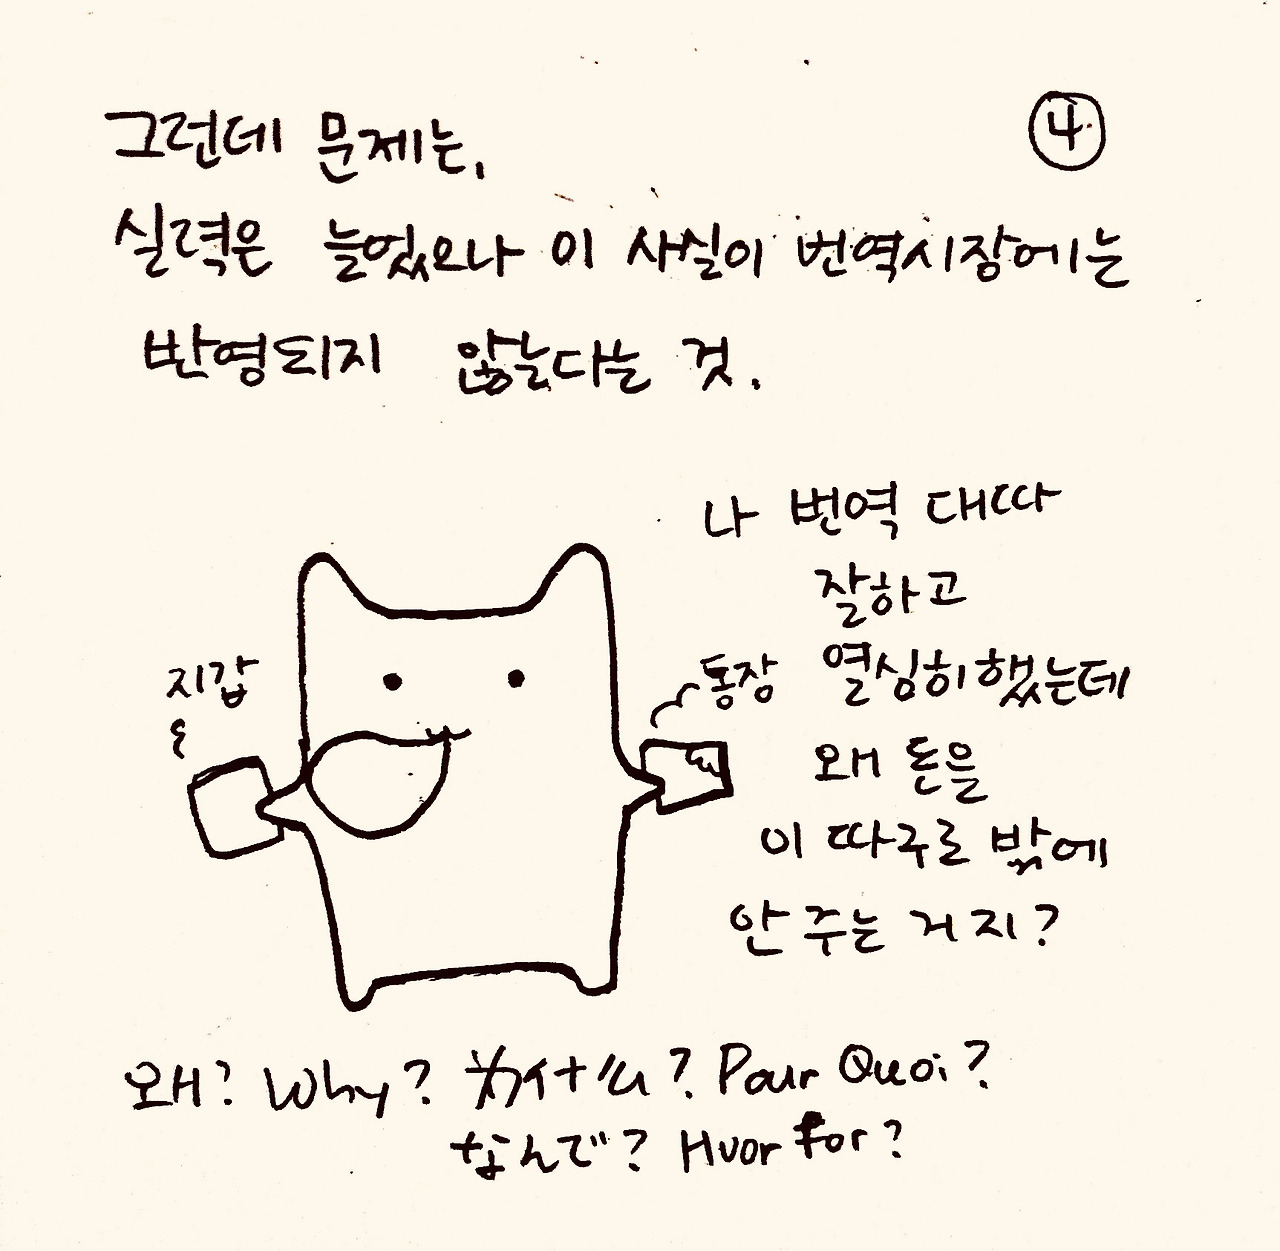 그런데 문제는,
④
실력은 늘었으나 이 사실이 번역시장에는
반영되지 않는다는 것.
나 번역 대따
잘하고
열심히 했는데
왜 돈을
이 따구로 밖에
안 주는 거지?
지갑
통장
왜? Why? 为什么? Pour Quoi?
なんで? Hvor for?